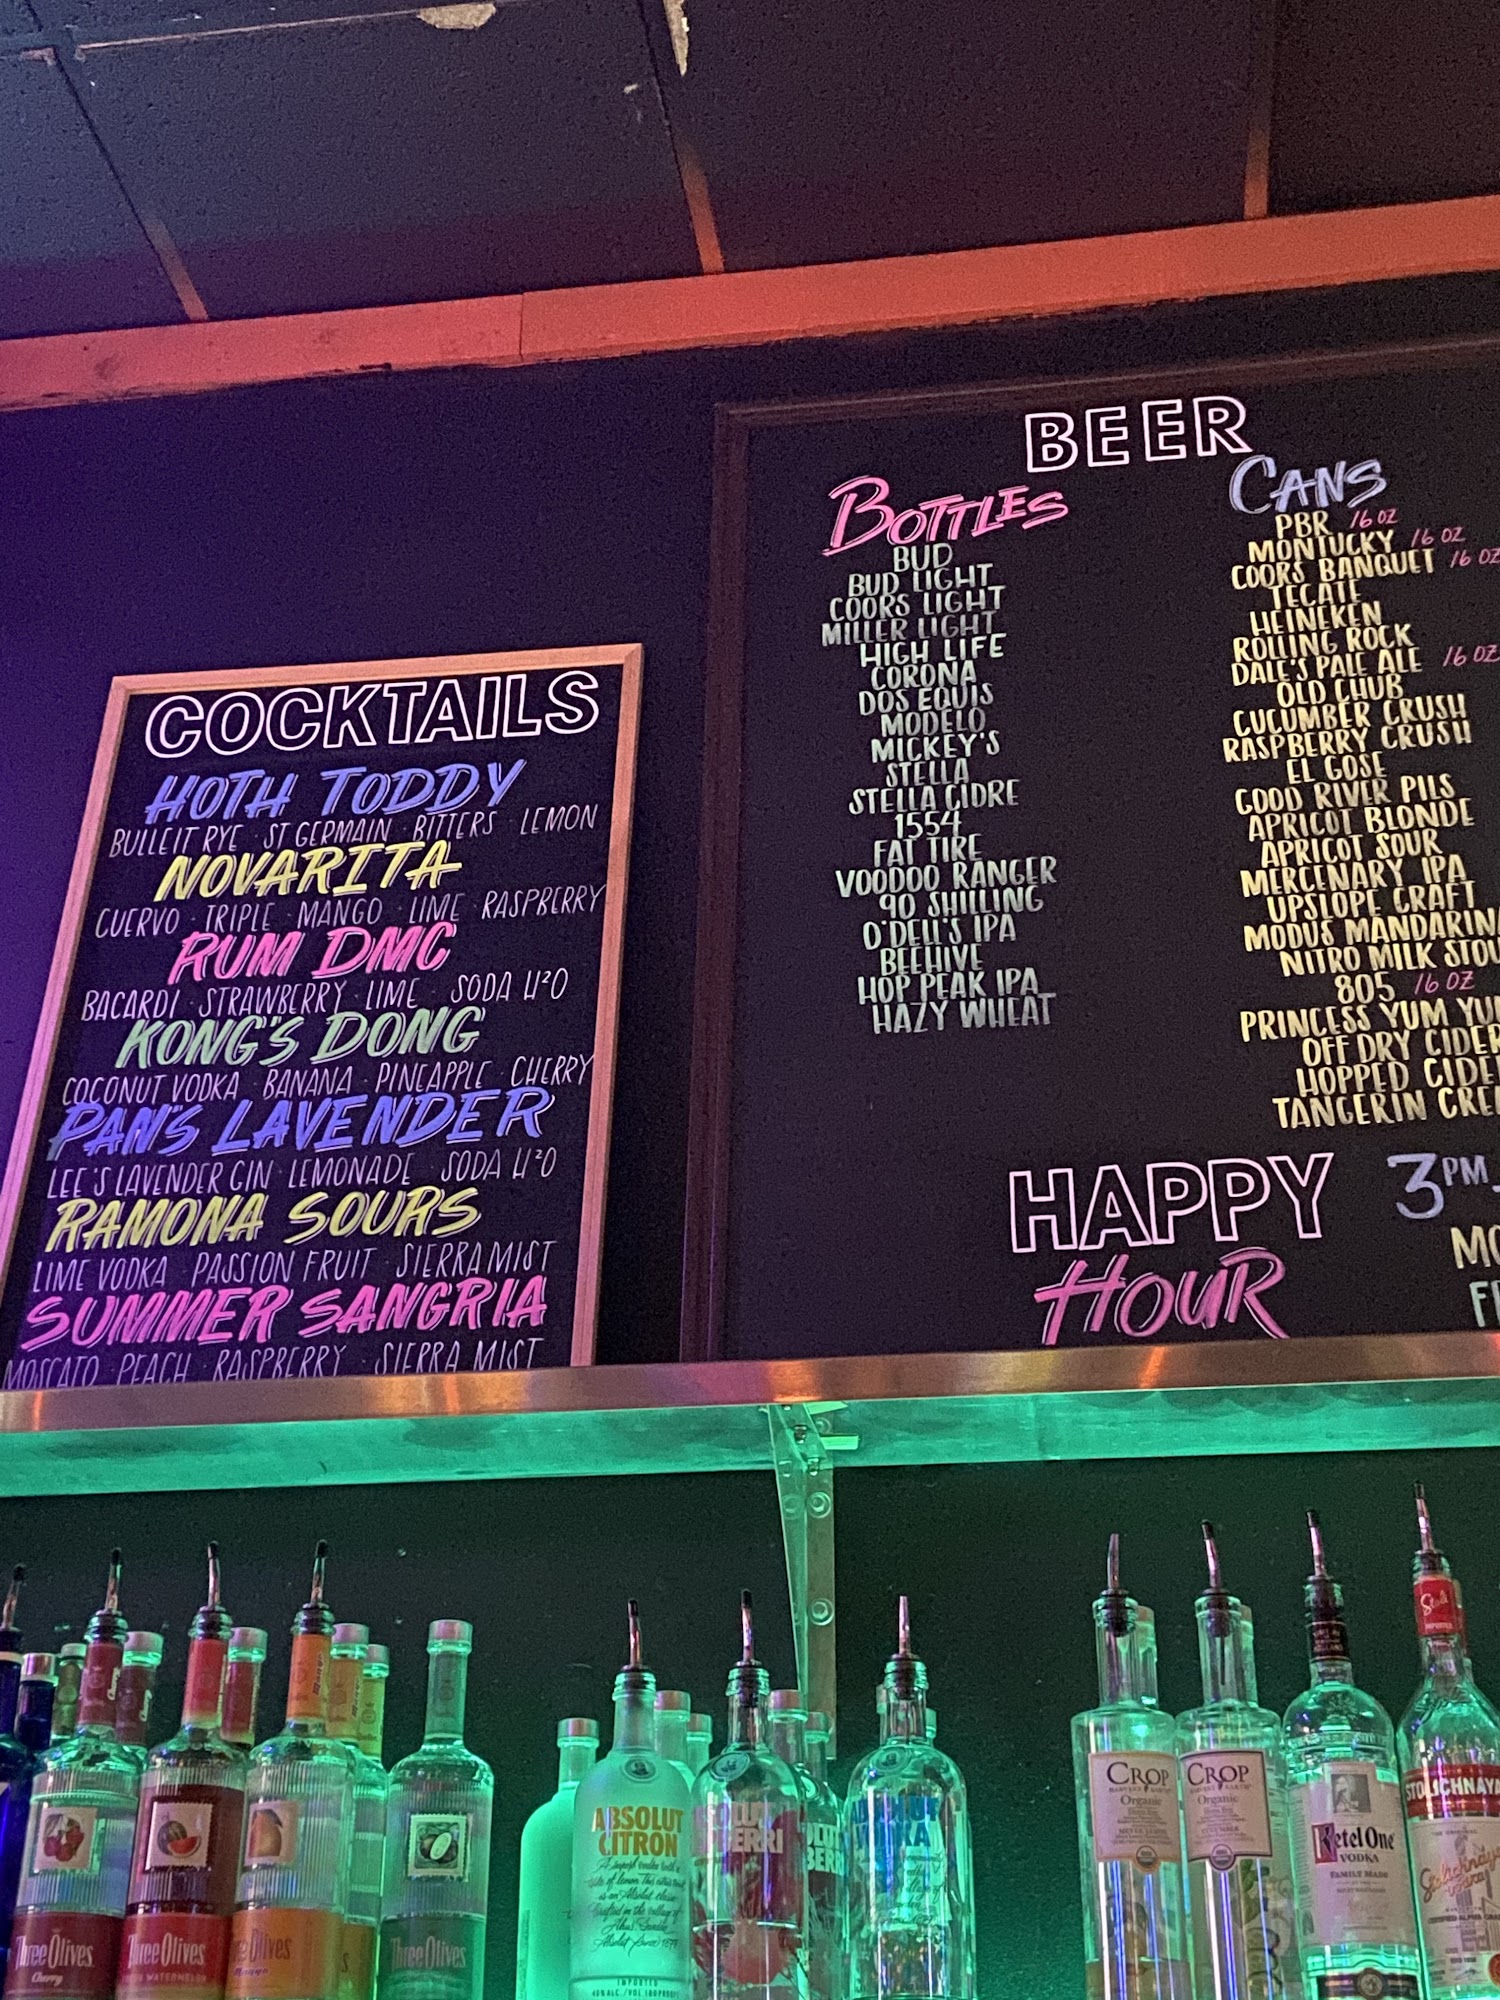 COCKTAILS
HOTH TODDY
BULLEIT RYE · ST GERMAIN · BITTERS · LEMON
NOVARITA
CUERVO · TRIPLE · MANGO · LIME · RASPBERRY
RUM DMC
BACARDI · STRAWBERRY · LIME · SODA H²O
KONG'S DONG
COCONUT VODKA · BANANA · PINEAPPLE · CHERRY
PAN'S LAVENDER
LEE'S LAVENDER GIN · LEMONADE · SODA H²O
RAMONA SOURS
LIME VODKA · PASSION FRUIT · SIERRA MIST
SUMMER SANGRIA
MOSCATO · PEACH · RASPBERRY · SIERRA MIST
BEER
BOTTLES
BUD
BUD LIGHT
COORS LIGHT
MILLER LIGHT
HIGH LIFE
CORONA
DOS EQUIS
MODELO
MICKEY'S
STELLA
STELLA CIDRE
1554
FAT TIRE
VOODOO RANGER
90 SHILLING
O'DELL'S IPA
BEEHIVE
HOP PEAK IPA
HAZY WHEAT
CANS
PBR 16 OZ
MONTUCKY 16 OZ
COORS BANQUET 16 OZ
TECATE
HEINEKEN
ROLLING ROCK
DALE'S PALE ALE 16 OZ
OLD CHUB
CUCUMBER CRUSH
RASPBERRY CRUSH
EL GOSE
GOOD RIVER PILS
APRICOT BLONDE
APRICOT SOUR
MERCENARY IPA
UPSLOPE CRAFT
MODUS MANDARINA
NITRO MILK STOU
805 16 OZ
PRINCESS YUM YU
OFF DRY CIDER
HOPPED CIDE
TANGERIN CRE
HAPPY
HOUR
3PM -
MO
FR
ThreeOlives
Cherry
ThreeOlives
WATERMELON
Olives
Mango
ThreeOlives
ABSOLUT
CITRON
IMPORTED
CROP
HARVEST EARTH
Organic
CROP
HARVEST EARTH
Organic
Ketel One
VODKA
FAMILY MADE
Stoli
STOLICHNAYA